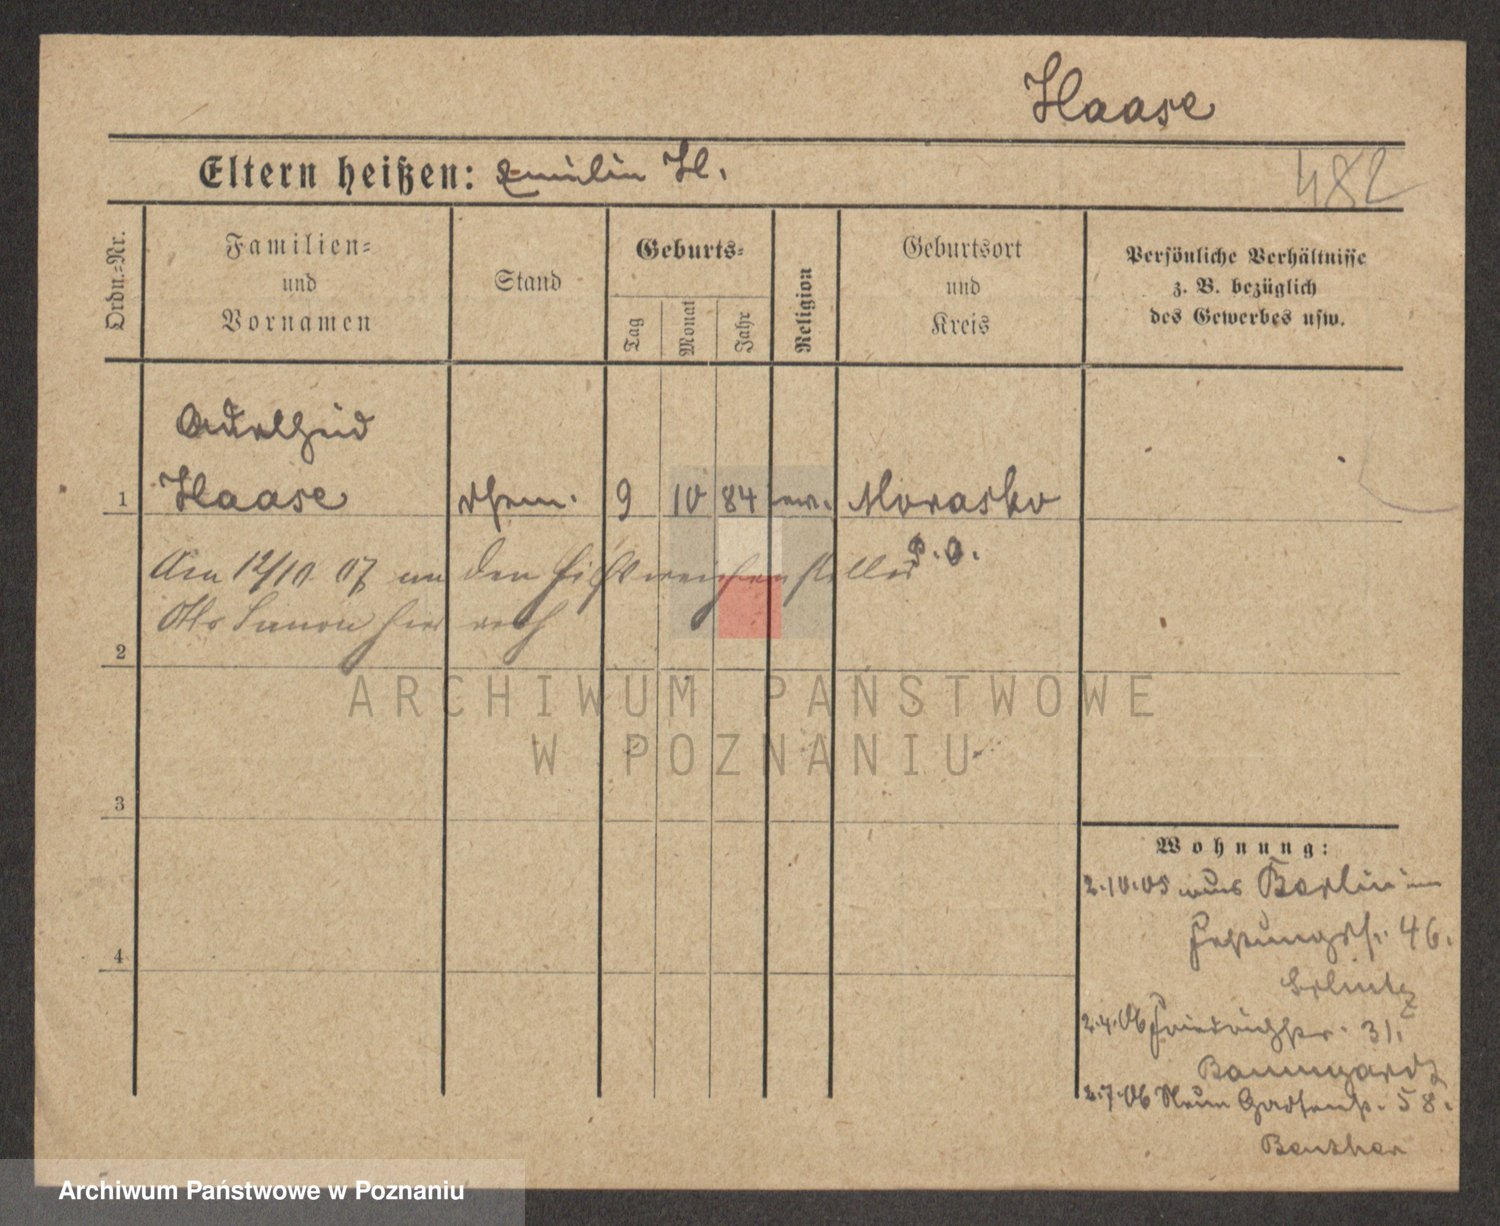 Haase
Eltern heißen: Emilie H.
482
Ordn.-Nr.
Familien-
und
Vornamen
Stand
Geburts-
Tag
Monat
Jahr
Religion
Geburtsort
und
Kreis
Persönliche Verhältnisse
z. B. bezüglich
des Gewerbes usw.
Adelheid
1 Haase 9 10 84 ew. Morasko
P. O.
Am 12/10 07 an den
Otto Simon hier verh
2
ARCHIWUM PAŃSTWOWE
W POZNANIU
3
Wohnung:
2.10.05 aus Berlin
46.
4
2.4.06 Friedrichstr. 31.
Baumgardt
2.7.06 Neue Gartenstr. 58.
Archiwum Państwowe w Poznaniu